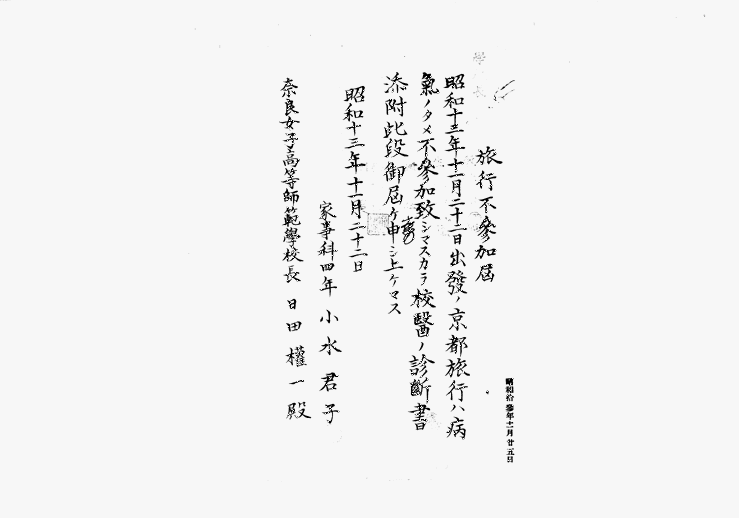 昭和拾參年十一月廿五日
旅行不參加屆
昭和十三年十一月二十二日出發ノ京都旅行ハ病
氣ノタメ不參加致シマスカラ校醫ノ診斷書
添附此段御屆ケ申シ上ケマス
昭和十三年十一月二十二日
家事科四年 小水君子
奈良女子高等師範學校長 日田權一殿